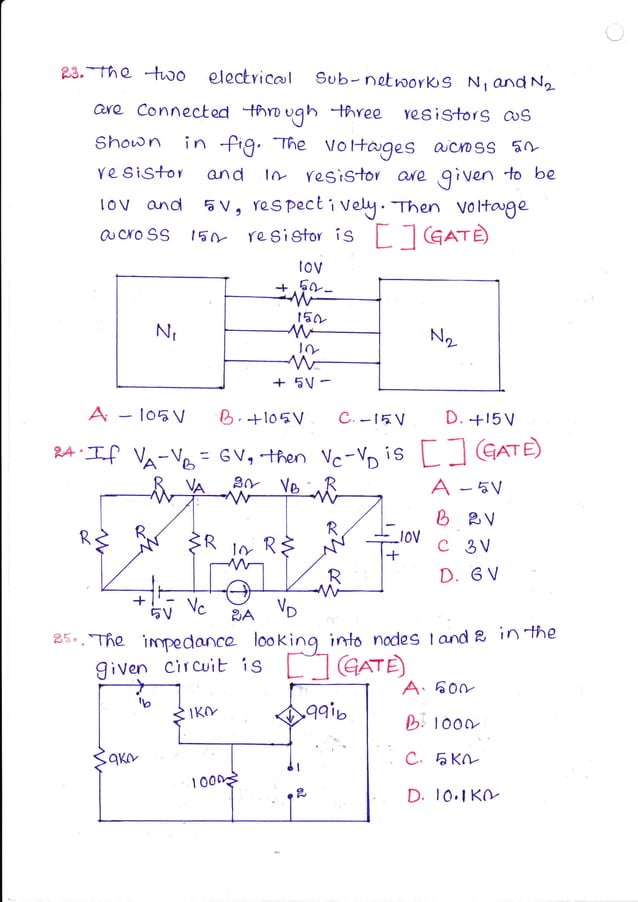 23. The two electrical sub-networks N1 and N2
are connected through three resistors as
shown in fig. The voltages across 5Ω
resistor and 1Ω resistor are given to be
10V and 5V, respectively. Then voltage
across 15Ω resistor is [ ] (GATE)
10V
+ 5Ω -
15Ω
N1
N2
1Ω
+ 5V -
A. - 105V B. +105V C. -15V D. +15V
24. If VA-VB = 6V, then VC-VD is [ ] (GATE)
R VA 2Ω VB R
A - 5V
B 2V
C 3V
D. 6V
R R R 1Ω R R - 10V +
R
+ 5V - VC 2A VD
25. The impedance looking into nodes 1 and 2 in the
given circuit is [ ] (GATE)
ib
1KΩ
99ib
9KΩ
100Ω
1
2
A. 50Ω
B. 100Ω
C. 5KΩ
D. 10.1KΩ